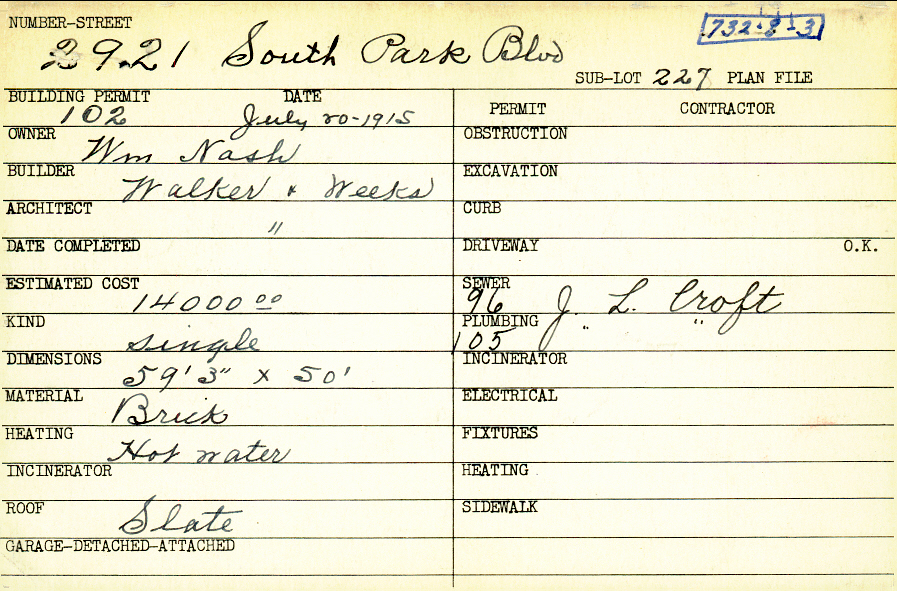 NUMBER-STREET
2921 South Park Blvd
732-8-3
SUB-LOT 227 PLAN FILE
BUILDING PERMIT DATE
102 July 20-1915
OWNER
Wm Nash
BUILDER
Walker & Weeks
ARCHITECT
"
DATE COMPLETED
ESTIMATED COST
14000 00
KIND
single
DIMENSIONS
59' 3" x 50'
MATERIAL
Brick
HEATING
Hot water
INCINERATOR
ROOF
Slate
GARAGE-DETACHED-ATTACHED
PERMIT CONTRACTOR
OBSTRUCTION
EXCAVATION
CURB
DRIVEWAY O.K.
SEWER
96 J. L. Croft
PLUMBING
105 " "
INCINERATOR
ELECTRICAL
FIXTURES
HEATING
SIDEWALK